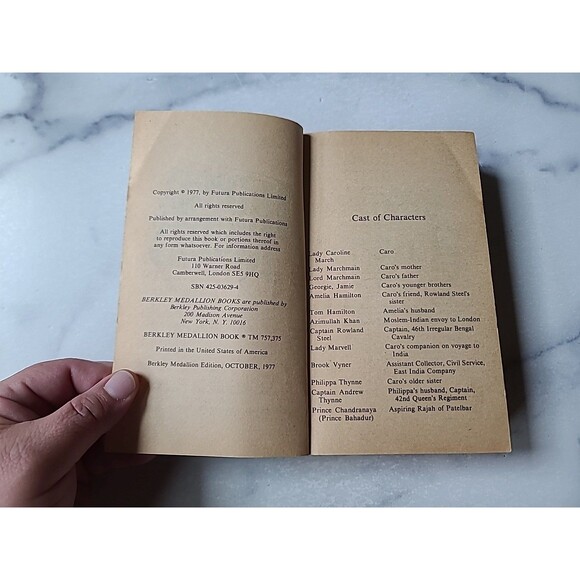 Copyright © 1977, by Futura Publications Limited
All rights reserved
Published by arrangement with Futura Publications
All rights reserved which includes the right
to reproduce this book or portions thereof in
any form whatsoever. For information address
Futura Publications Limited
110 Warner Road
Camberwell, London SE5 9HQ
SBN 425-03629-4
BERKLEY MEDALLION BOOKS are published by
Berkley Publishing Corporation
200 Madison Avenue
New York, N. Y. 10016
BERKLEY MEDALLION BOOK ® TM 757,375
Printed in the United States of America
Berkley Medallion Edition, OCTOBER, 1977
Cast of Characters
Lady Caroline March Caro
Lady Marchmain Caro's mother
Lord Marchmain Caro's father
Georgie, Jamie Caro's younger brothers
Amelia Hamilton Caro's friend, Rowland Steel's
sister
Tom Hamilton Amelia's husband
Azimullah Khan Moslem-Indian envoy to London
Captain Rowland Captain, 46th Irregular Bengal
Steel Cavalry
Lady Marvell Caro's companion on voyage to
India
Brook Vyner Assistant Collector, Civil Service,
East India Company
Philippa Thynne Caro's older sister
Captain Andrew Philippa's husband, Captain,
Thynne 42nd Queen's Regiment
Prince Chandranaya Aspiring Rajah of Patelbar
(Prince Bahadur)